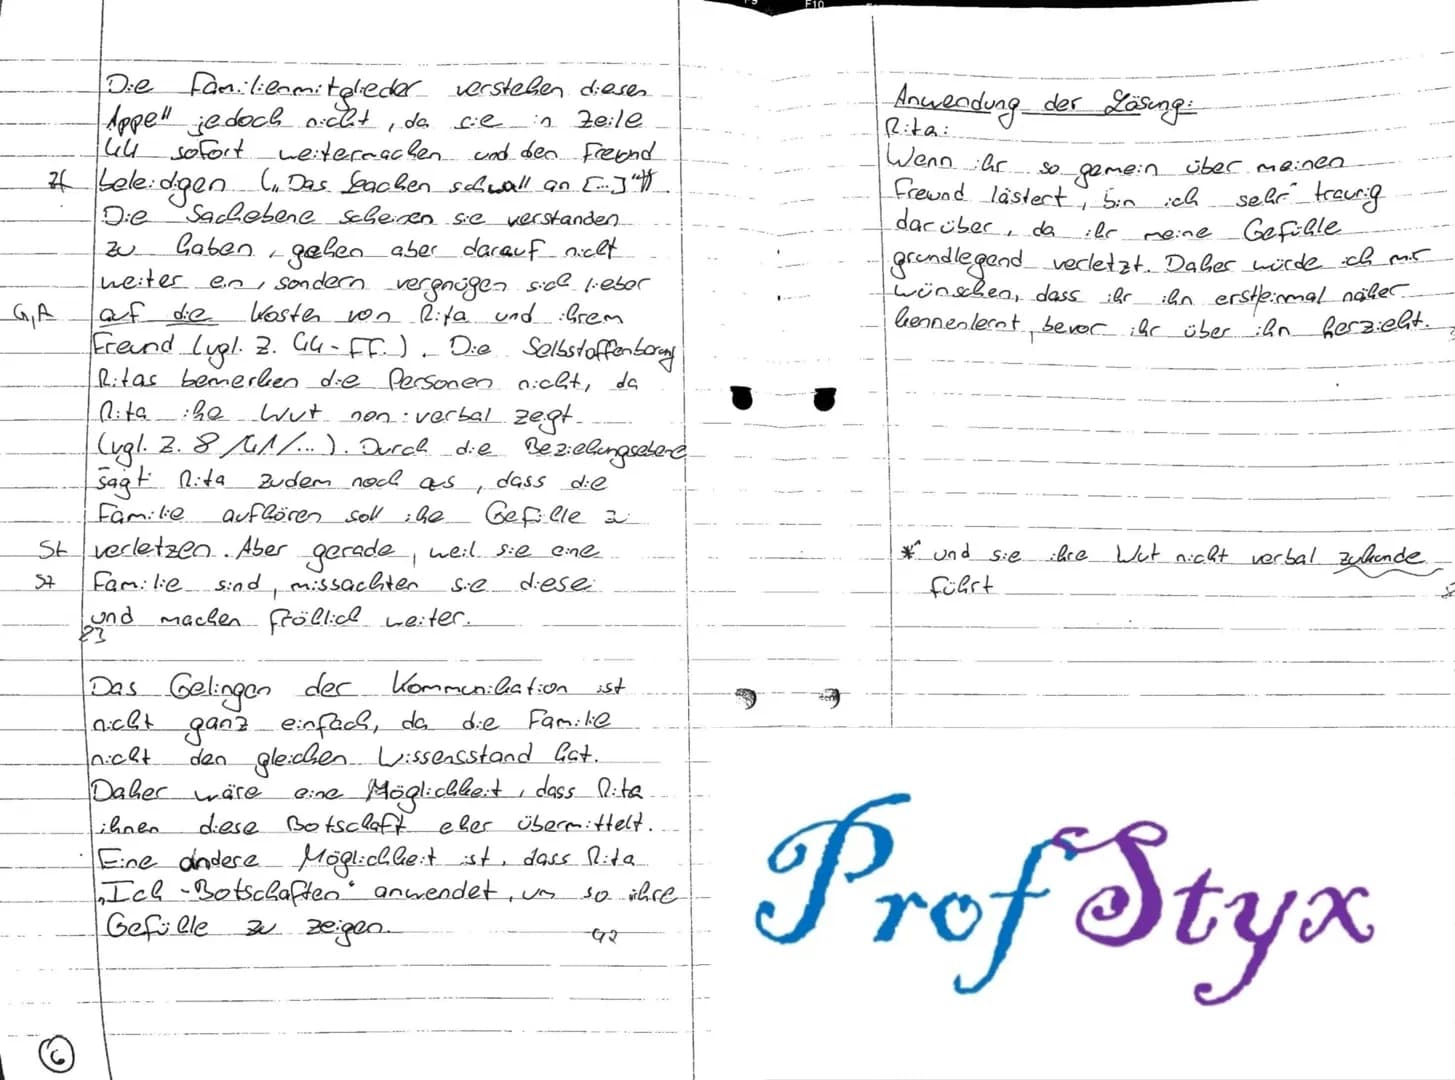 F10
Die Familienmitglieder verstehen diesen
Appell jedoch nicht, da sie in Zeile
44 sofort weitermachen und den Freund
Zf
beleidigen („Das Lachen schwall an [...]").
Die Sachebene scheinen sie verstanden
zu haben, gehen aber darauf nicht
weiter ein, sondern vergnügen sich lieber
G, A
auf die Kosten von Rita und ihrem
Freund (vgl. Z. 44-ff.). Die Selbstoffenbarung
Ritas bemerken die Personen nicht, da
Rita ihre Wut non-verbal zeigt
(vgl. Z. 8/41/...). Durch die Beziehungsebene
sagt Rita zudem noch aus, dass die
Familie aufhören soll ihre Gefühle zu
St
verletzen. Aber gerade, weil sie eine
St
Familie sind, missachten sie diese
und machen fröhlich weiter.
Das Gelingen der Kommunikation ist
nicht ganz einfach, da die Familie
nicht den gleichen Wissensstand hat.
Daher wäre eine Möglichkeit, dass Rita
ihnen diese Botschaft eher übermittelt.
Eine andere Möglichkeit ist, dass Rita
„Ich-Botschaften" anwendet, um so ihre
Gefühle zu zeigen.
6
Anwendung der Lösung:
Rita:
Wenn ihr so gemein über meinen
Freund lästert, bin ich sehr traurig
darüber, da ihr meine Gefühle
grundlegend verletzt. Daher würde ich mir
wünschen, dass ihr ihn ersteinmal näher
kennenlernt, bevor ihr über ihn herzieht.
* und sie ihre Wut nicht verbal zuhande
führt
Prof Styx